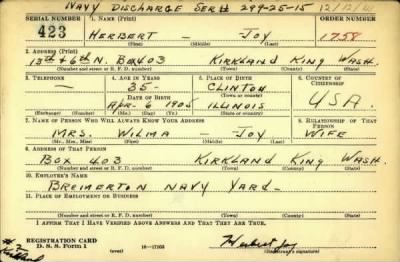 NAVY DISCHARGE SER# 299-25-15 12/12/41
SERIAL NUMBER 1. NAME (Print) ORDER NUMBER
423 HERBERT - JOY 1758
(First) (Middle) (Last)
2. ADDRESS (Print)
13TH & 6TH N. BOX 403 KIRKLAND KING WASH.
(Number and street or R. F. D. number) (Town) (County) (State)
3. TELEPHONE 4. AGE IN YEARS 5. PLACE OF BIRTH 6. COUNTRY OF CITIZENSHIP
— 35 - CLINTON
DATE OF BIRTH (Town or county)
APR- 6 1905 ILLINOIS U.S.A.
(Exchange) (No.) (Mo.) (Day) (Yr.) (State or country)
7. NAME OF PERSON WHO WILL ALWAYS KNOW YOUR ADDRESS 8. RELATIONSHIP OF THAT PERSON
MRS. WILMA - JOY WIFE
(Mr., Mrs., Miss) (First) (Middle) (Last)
9. ADDRESS OF THAT PERSON
BOX 403 KIRKLAND KING WASH.
(Number and street or R. F. D. number) (Town) (County) (State)
10. EMPLOYER'S NAME
BREMERTON NAVY YARD-
11. PLACE OF EMPLOYMENT OR BUSINESS
(Number and street or R. F. D. number) (Town) (County) (State)
I AFFIRM THAT I HAVE VERIFIED ABOVE ANSWERS AND THAT THEY ARE TRUE.
REGISTRATION CARD
D. S. S. Form 1 (over) 16—17105 Herbert Joy
(Registrant's signature)
#2
Kirkland